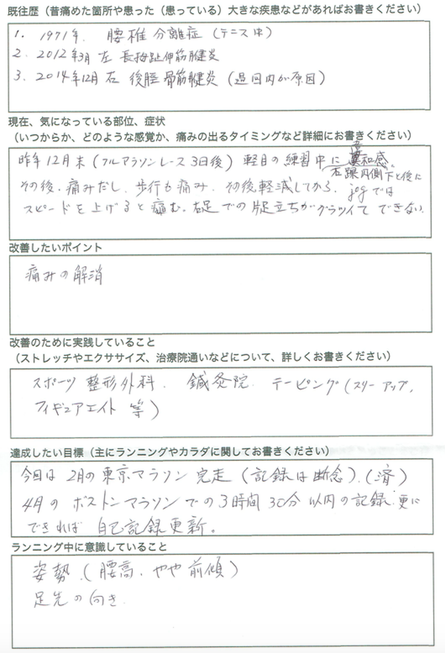 既往歴（昔痛めた箇所や患った（患っている）大きな疾患などがあればお書きください）
1. 1971年. 腰椎分離症（テニス中）
2. 2012年3月 左 長拇趾伸筋腱炎
3. 2014年12月 右 後脛骨筋腱炎（過回内が原因）
現在、気になっている部位、症状
（いつからか、どのような感覚か、痛みの出るタイミングなど詳細にお書きください）
昨年12月末（フルマラソンレース3日後）軽目の練習中に違和感。
右踝内側下と後に
その後. 痛みだし. 歩行も痛み. その後軽減してから. jogでは
スピードを上げると痛む. 右足での片足立ちがグラツイてできない.
改善したいポイント
痛みの解消
改善のために実践していること
（ストレッチやエクササイズ、治療院通いなどについて、詳しくお書きください）
スポーツ整形外科. 鍼灸院. テーピング（スリーアップ.
フィギュアエイト等）
達成したい目標（主にランニングやカラダに関してお書きください）
今回は2月の東京マラソン完走（記録は断念）.（済）
4月のボストンマラソンでの3時間30分以内の記録. 更に
できれば自己記録更新。
ランニング中に意識していること
姿勢.（腰高. やや前傾）
足先の向き.